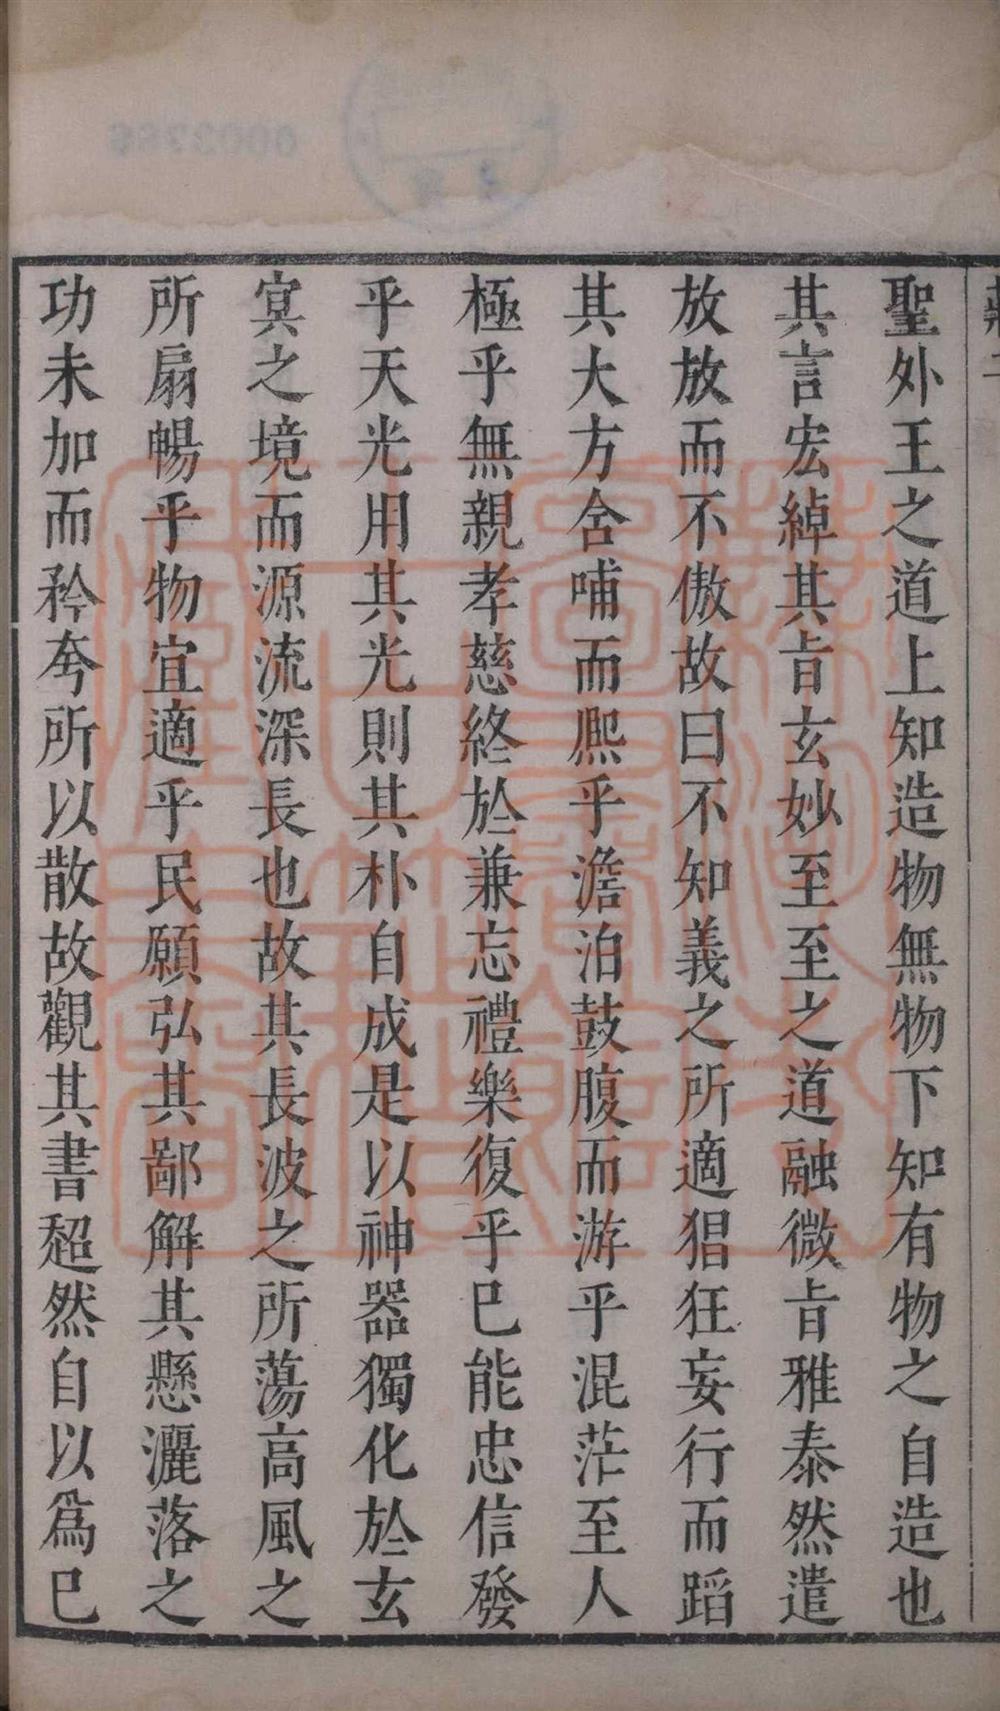 聖外王之道上知造物無物下知有物之自造也
其言宏綽其㫖玄妙至至之道融微㫖雅泰然遣
放放而不傲故曰不知義之所適猖狂妄行而蹈
其大方含哺而熈乎澹泊鼓腹而游乎混茫至人
極乎無親孝慈終於兼忘禮樂復乎巳能忠信發
乎天光用其光則其朴自成是以神器獨化於玄
㝠之境而源流深長也故其長波之所蕩高風之
所扇暢乎物宜適乎民願弘其鄙解其懸灑落之
功未加而矜夸所以散故觀其書超然自以爲巳